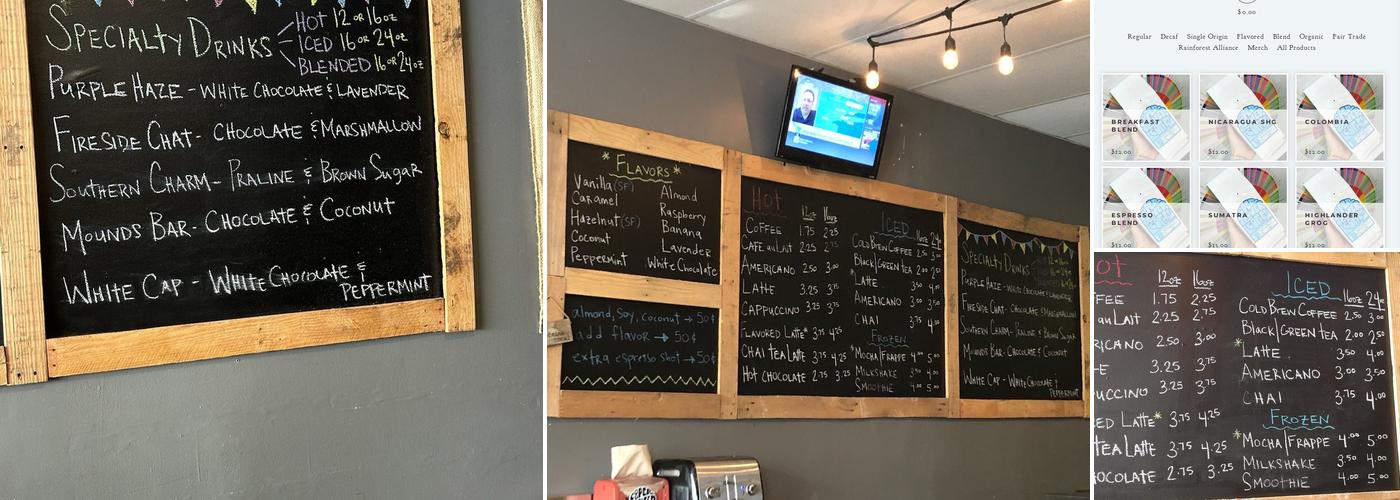 SPECIALTY DRINKS
HOT 12 OR 16oz
ICED 16 OR 24oz
BLENDED 16 OR 24oz
PURPLE HAZE - WHITE CHOCOLATE & LAVENDER
FIRESIDE CHAT - CHOCOLATE & MARSHMALLOW
SOUTHERN CHARM - PRALINE & BROWN SUGAR
MOUNDS BAR - CHOCOLATE & COCONUT
WHITE CAP - WHITE CHOCOLATE &
PEPPERMINT
* FLAVORS *
Vanilla (SF) Almond
Caramel Raspberry
Hazelnut (SF) Banana
Coconut Lavender
Peppermint White Chocolate
almond, soy, coconut → 50¢
add flavor → 50¢
extra espresso shot → 50¢
HOT 12oz 16oz
COFFEE 1.75 2.25
CAFE au LAIT 2.25 2.75
AMERICANO 2.50 3.00
LATTE 3.25 3.75
CAPPUCCINO 3.25 3.75
FLAVORED LATTE* 3.75 4.25
CHAI TEA LATTE 3.75 4.25
HOT CHOCOLATE 2.75 3.25
ICED 16oz 24oz
COLD BREW COFFEE 2.50 3.00
BLACK|GREEN TEA 2.00 2.50
*LATTE 3.50 4.00
AMERICANO 3.00 3.50
CHAI 3.75 4.00
FROZEN
*MOCHA|FRAPPE 4.00 5.00
MILKSHAKE 3.50 4.00
SMOOTHIE 4.00 5.00
SPECIALTY DRINKS
PURPLE HAZE - WHITE CHOCOLATE & LAVENDER
FIRESIDE CHAT - CHOCOLATE & MARSHMALLOW
SOUTHERN CHARM - PRALINE & BROWN SUGAR
MOUNDS BAR - CHOCOLATE & COCONUT
WHITE CAP - WHITE CHOCOLATE &
PEPPERMINT
$0.00
Regular Decaf Single Origin Flavored Blend Organic Fair Trade
Rainforest Alliance Merch All Products
BREAKFAST BLEND
$12.00
NICARAGUA SHG
$12.00
COLOMBIA
$12.00
ESPRESSO BLEND
SUMATRA
HIGHLANDER GROG
OT 12oz 16oz
FFEE 1.75 2.25
au LAIT 2.25 2.75
RICANO 2.50 3.00
E 3.25 3.75
PUCCINO 3.25 3.75
ED LATTE* 3.75 4.25
TEA LATTE 3.75 4.25
OCOLATE 2.75 3.25
ICED 16oz 24
COLD BREW COFFEE 2.50 3.00
BLACK|GREEN TEA 2.00 2.50
*LATTE 3.50 4.00
AMERICANO 3.00 3.50
CHAI 3.75 4.00
FROZEN
*MOCHA|FRAPPE 4.00 5.00
MILKSHAKE 3.50 4.00
SMOOTHIE 4.00 5.00